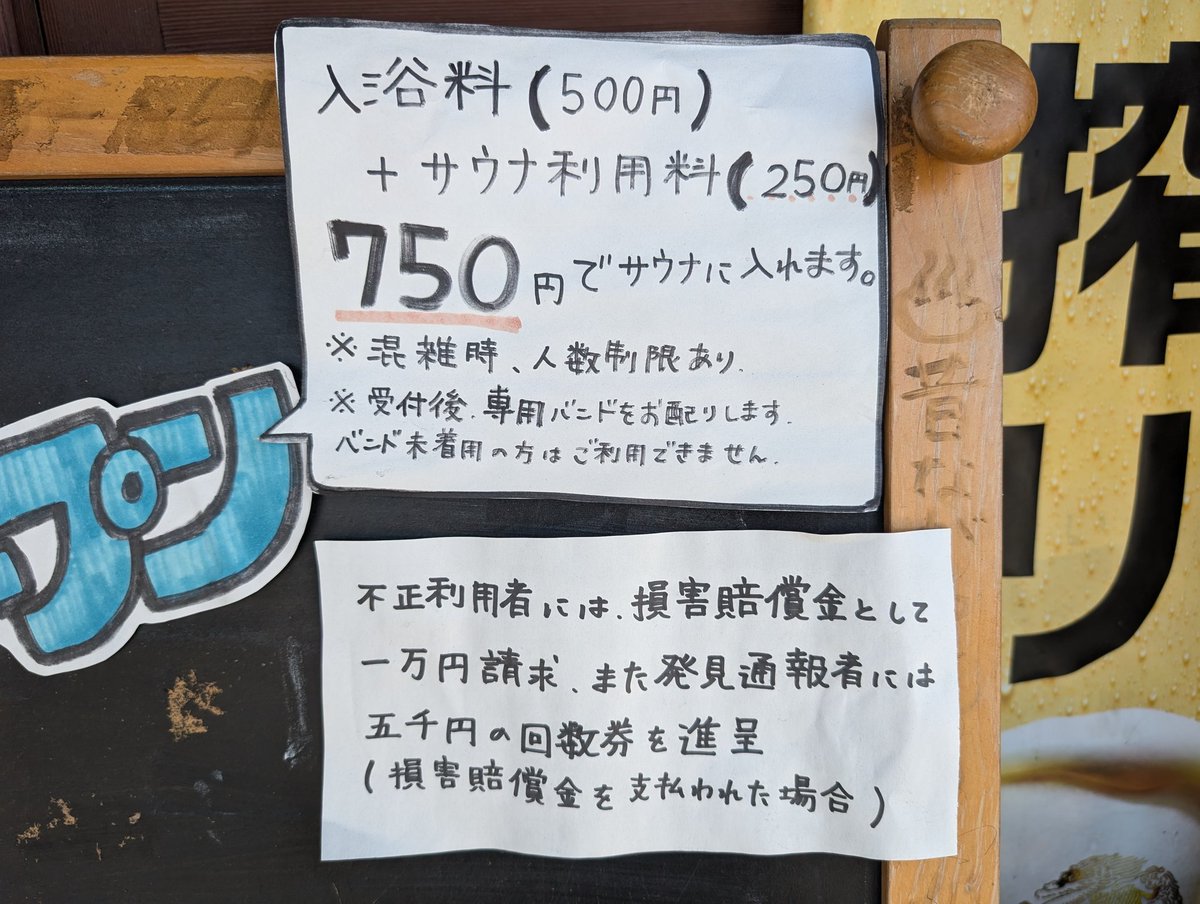 入浴料(500円)
+サウナ利用料(250円)
750円でサウナに入れます。
※混雑時、人数制限あり.
※受付後、専用バンドをお配りします.
バンド未着用の方はご利用できません.
プン
不正利用者には、損害賠償金として
一万円請求、また発見通報者には
五千円の回数券を進呈
(損害賠償金を支払われた場合)
昔な
搾り